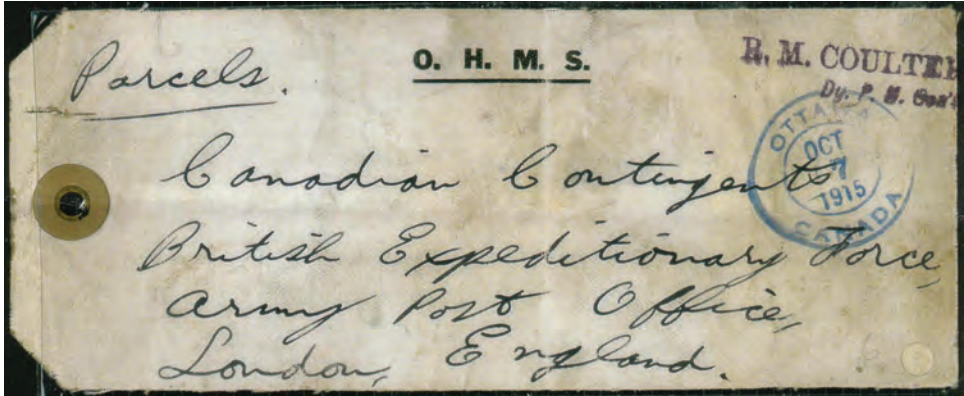 Parcels.
O. H. M. S.
R. M. COULTER
Dy. P. M. Gen'l
OTTAWA
OCT
7
1915
CANADA
Canadian Contingents
British Expeditionary Force,
Army Post Office,
London, England.